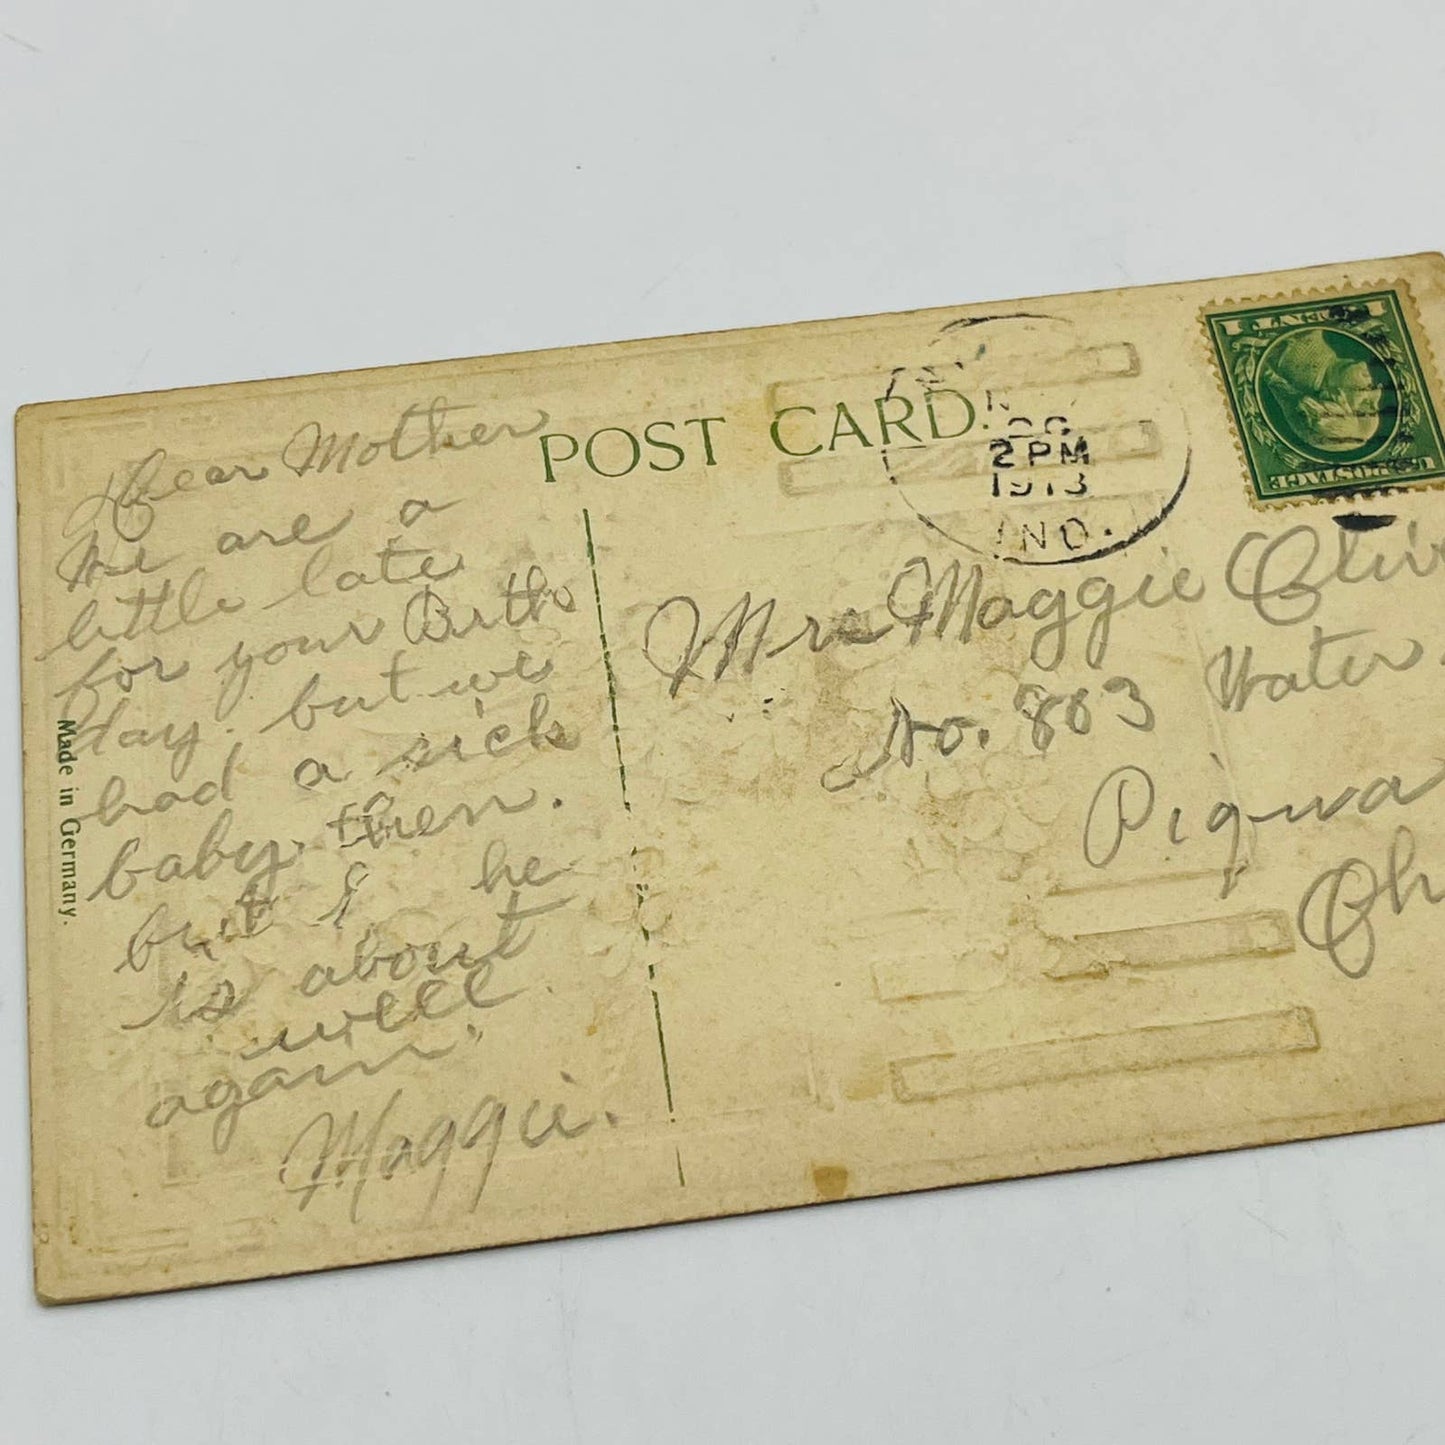 POST CARD.
2 PM
1913
IND.
1 CENT 1
U.S. POSTAGE
Dear Mother
We are a
little late
for your Birth
day. but we
had a sick
baby. then.
but he
is about
well
again.
Maggie.
Made in Germany.
Mrs Maggie
No. 803 Water
Piqua